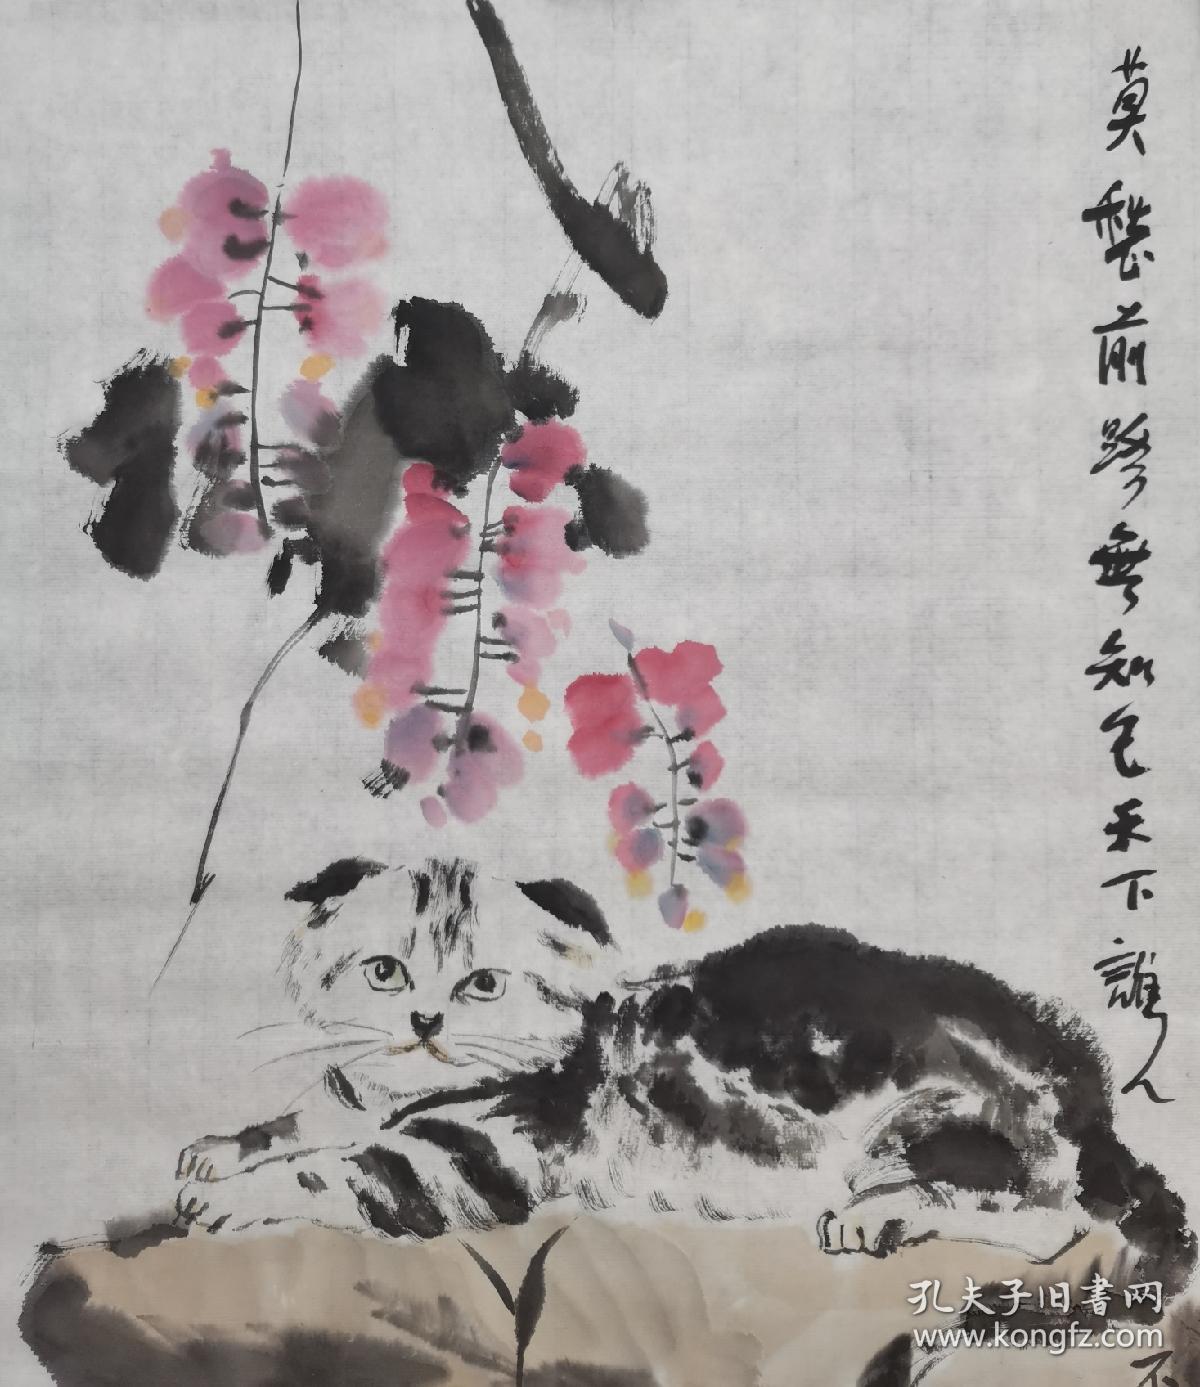 莫愁前路無知己天下誰人
不
孔夫子旧書网
www.kongfz.com